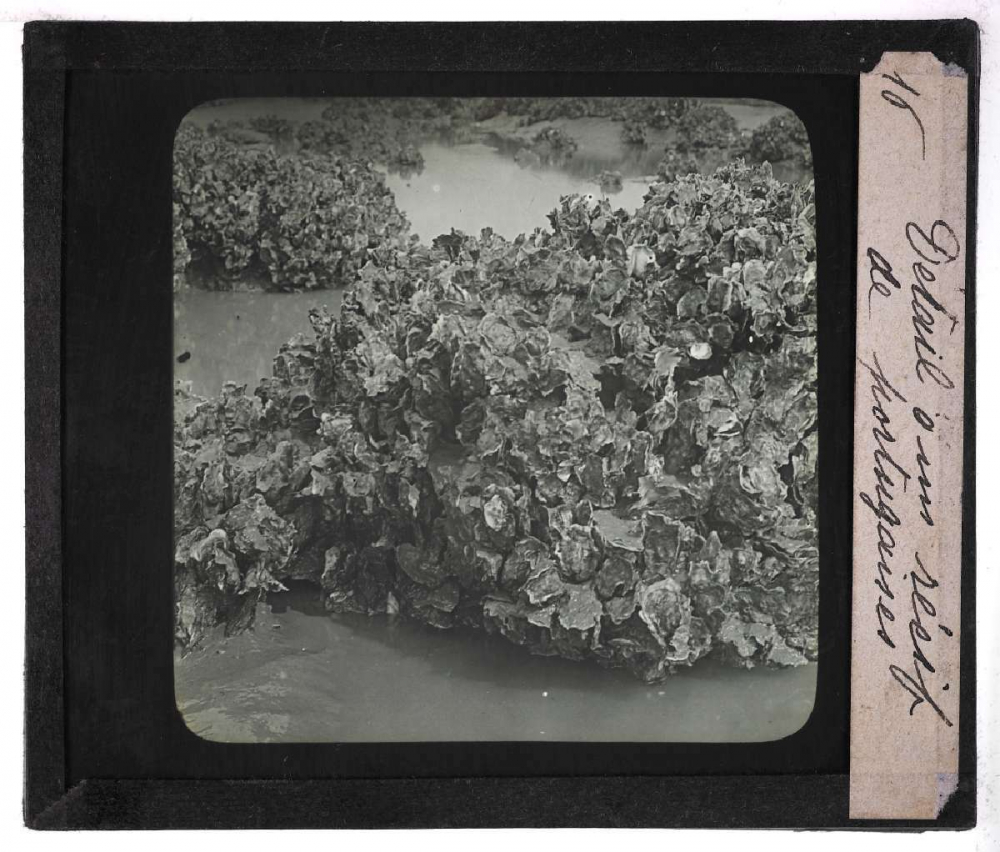 16
Détail d'un récif
de portugaises